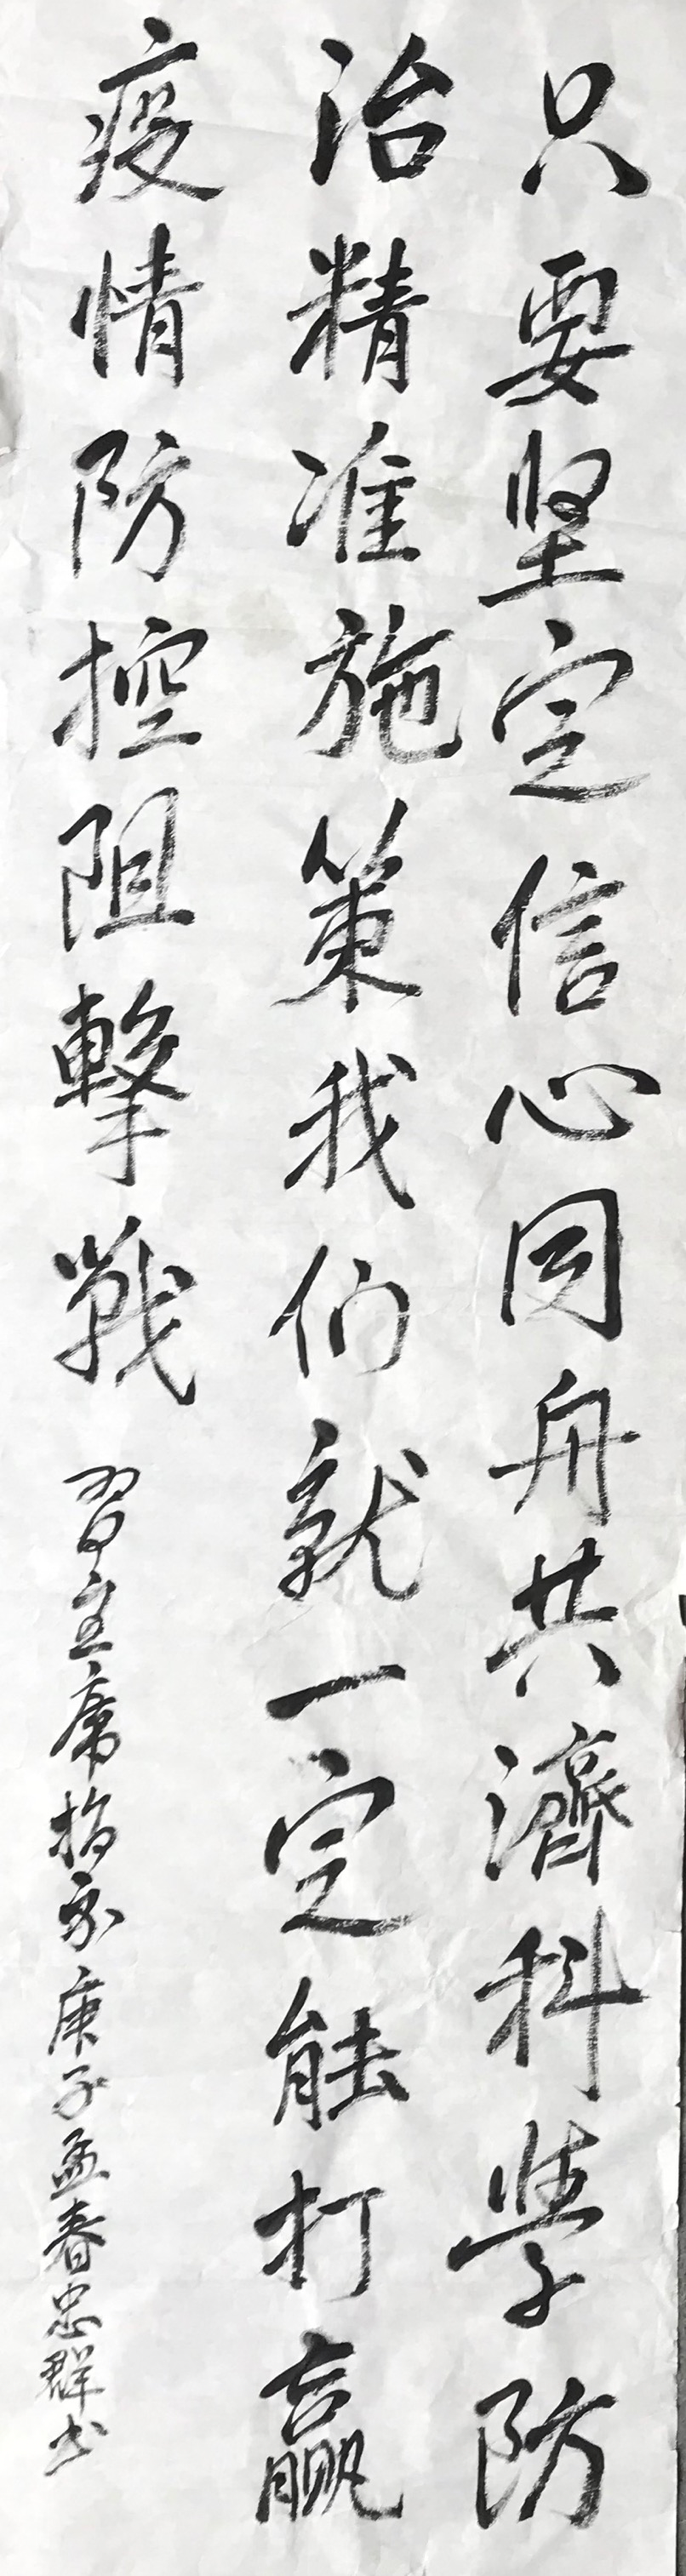 只要坚定信心同舟共濟科學防
治精准施策我们就一定能打赢
疫情防控阻擊戰
習主席指示庚子孟春忠群书